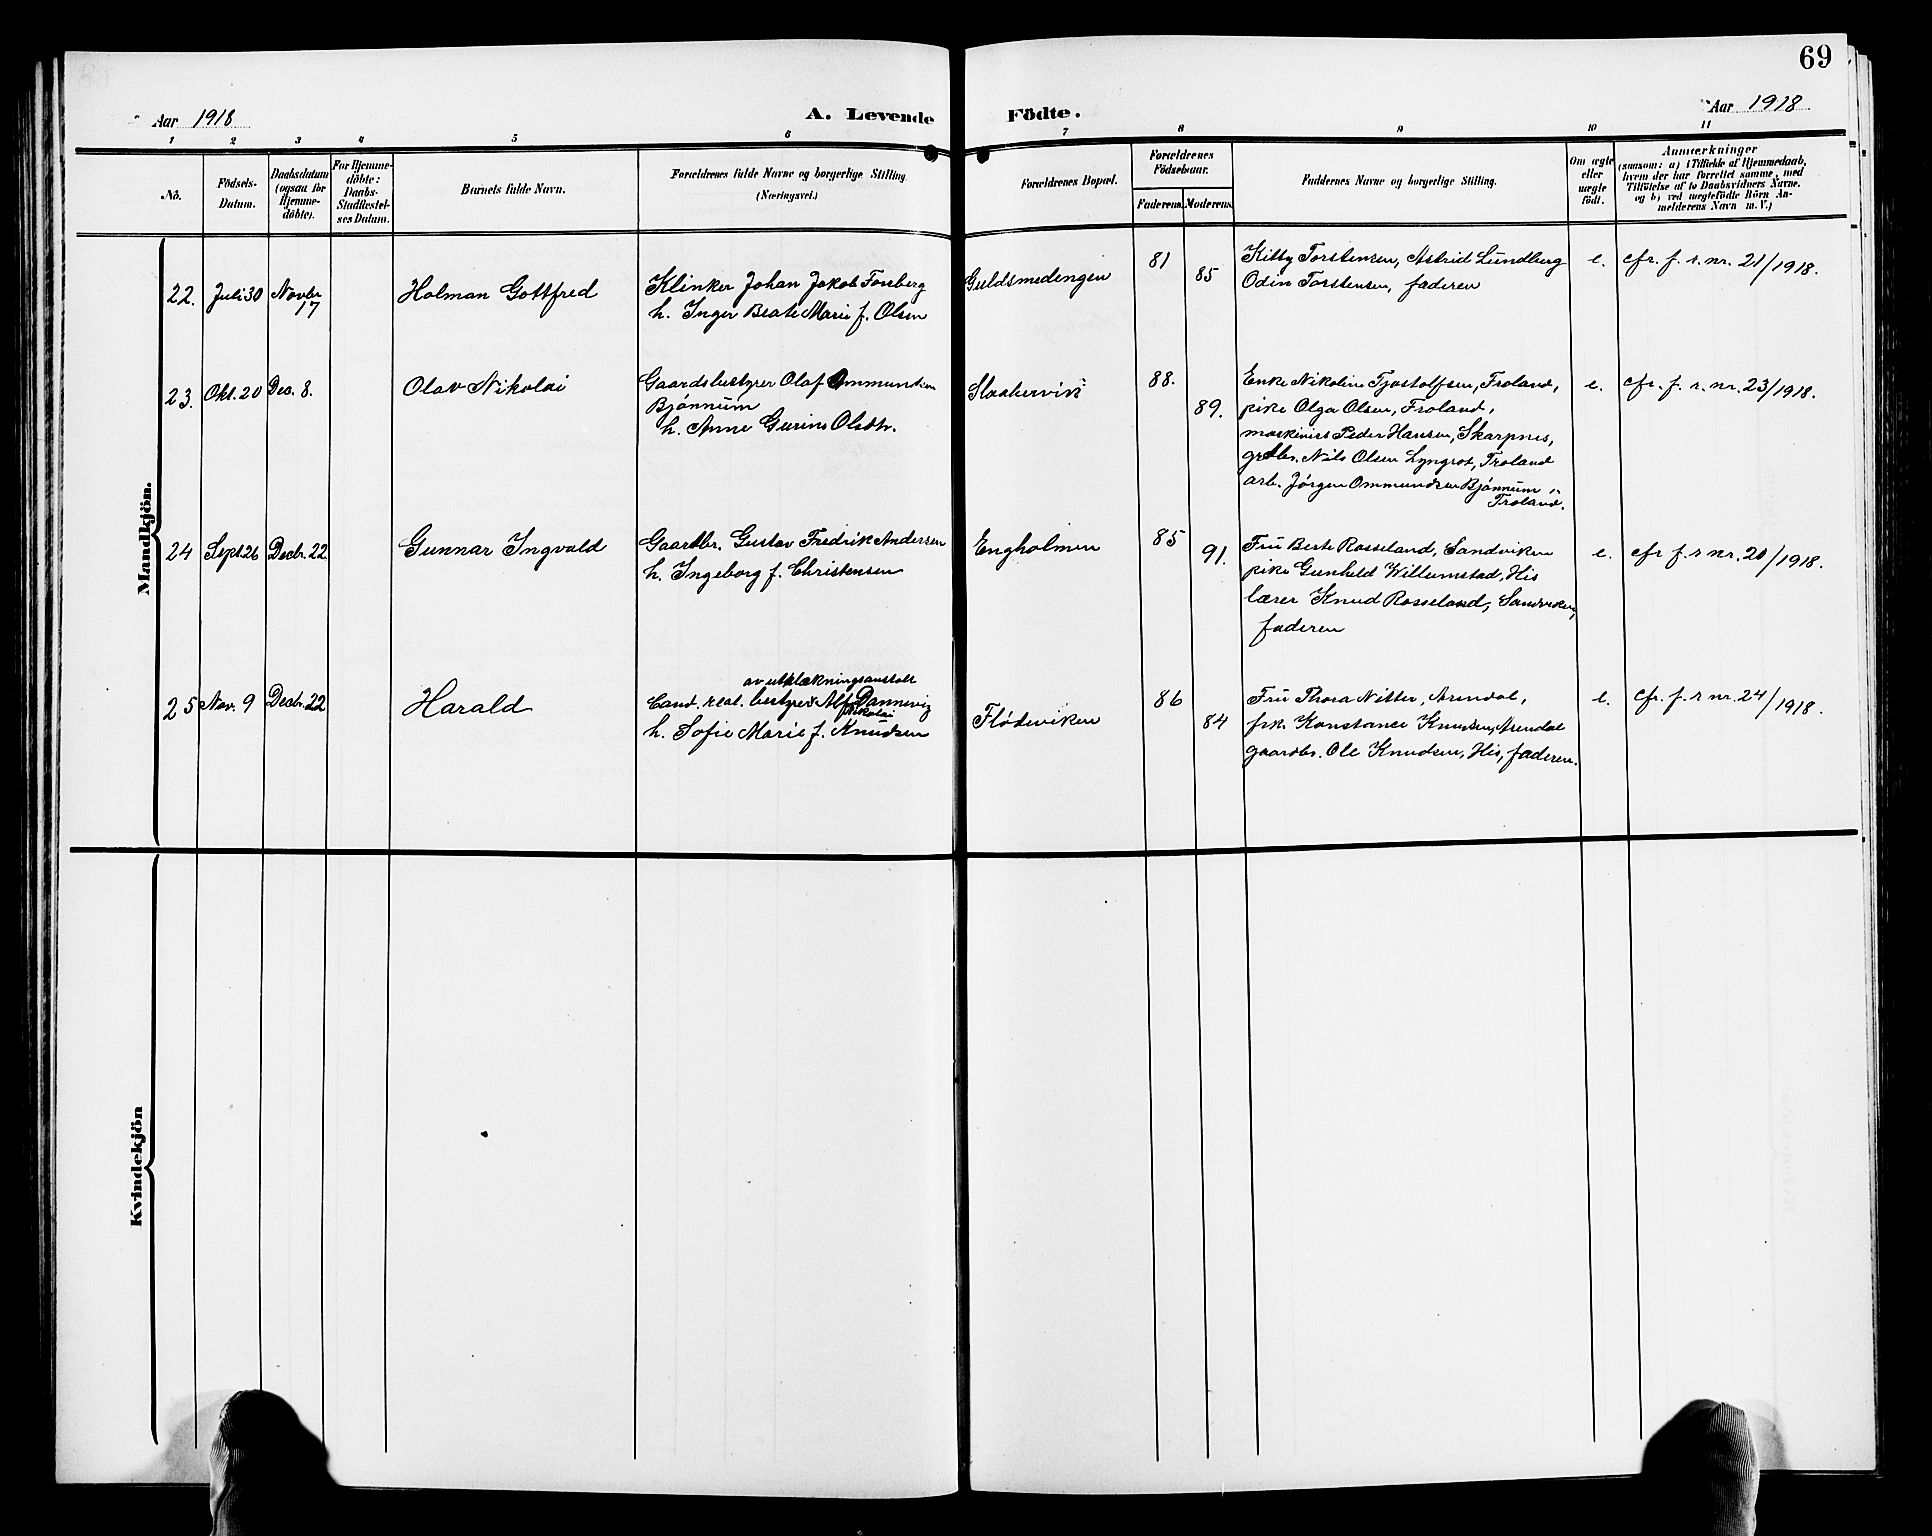 69
Aar 1918
A. Levende
Födte.
Aar 1918
1 2 3 4 5 6 7 8 9 10 11
No.
Födsels-
Datum.
Daabsdatum
(ogsaa for
Hjemme-
döbte).
For Hjemme-
döbte:
Daabs-
Stadfæstel-
ses Datum.
Barnets fulde Navn.
Forældrenes fulde Navne og borgerlige Stilling.
(Næringsvei.)
Forældrenes Bopæl.
Forældrenes
Födselsaar.
Faderens. Moderens.
Faddernes Navne og borgerlige Stilling.
Om ægte
eller
uægte
födt.
Anmærkninger
(saasom: a) i Tilfælde af Hjemmedaab,
hvem der har forrettet samme, med
Tilföielse af to Daabsvidners Navne,
og b) ved uægtefödte Börn An-
melderens Navn m. V.)
Mandkjön.
22. Juli 30 Novbr
17
Holman Gottfred
Klinker Johan Jakob Forsberg
h. Inger Beate Marie f. Olsen
Guldsmedengen
81
85
Kitty Torstensen, Astrid Lundberg
Odin Torstensen, faderen
e.
cfr. f. r. nr. 21/1918.
23. Okt. 20 Dec. 8.
Olav Nikolai
Gaardsbestyrer Olaf Ommundsen
Bjönnum
h. Anne Gurine Olsdtr.
88.
89.
Enke Nikoline Tjostolfsen, Froland,
pike Olga Olsen, Froland,
maskinist Peder Hansen, Skarpnes,
grdbr. Nils Olsen Lyngrot, Froland
arb. Jörgen Ommundsen Bjönnum,
Froland.
e.
cfr. f. r. nr. 23/1918.
24 Sept. 26 Decbr. 22
Gunnar Ingvald
Gaardbr. Gustav Fredrik Andersen
h. Ingeborg f. Christensen
Engholmen
85
91.
Fru Berte Rosseland, Sandviken
pike Gunhild Willumstad, His
lærer Knud Rosseland, Sandviken,
faderen
e.
cfr f. r nr. 20/1918.
25 Nov. 9 Decbr. 22
Harald
av utklækningsanstalt
Cand. real. bestyrer Alf Dannevig
Nikolai
h. Sofie Marie f. Knudsen
Flödeviken
86
84
Fru Thora Nitter, Arendal,
frk. Konstance Knudsen, Arendal
gaardbr. Ole Knudsen, His, faderen.
e.
cfr. f. r nr. 24/1918.
Kvindekjön